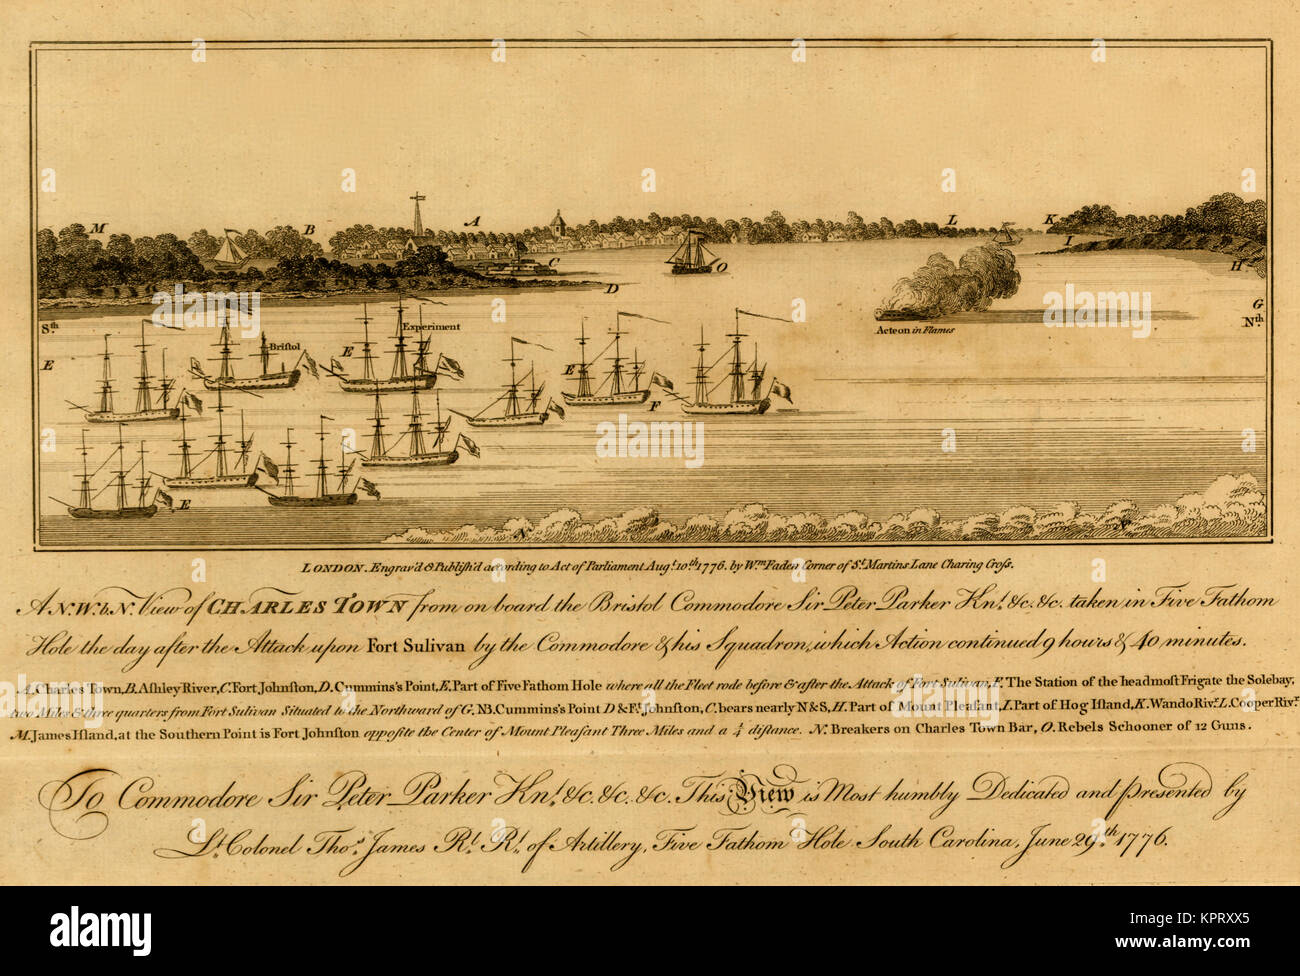 M
B
A
L
K
I
C
O
H
D
E
G
Sth
Nth
Acteon in Flames
Experiment
Bristol
E
E
E
F
E
N
LONDON. Engrav'd & Publish'd according to Act of Parliament Augt. 10th 1776. by Wm Faden Corner of St. Martins Lane Charing Cross.
A N.W.b.N. View of CHARLES TOWN from on board the Bristol Commodore Sir Peter Parker Knt. &c. &c. taken in Five Fathom
Hole the day after the Attack upon Fort Sulivan by the Commodore & his Squadron, which Action continued 9 hours & 40 minutes.
A. Charles Town, B. Ashley River, C. Fort Johnston, D. Cummins's Point, E. Part of Five Fathom Hole where all the Fleet rode before & after the Attack of Fort Sulivan, F. The Station of the headmost Frigate the Solebay,
two Miles & three quarters from Fort Sulivan Situated to the Northward of G. NB. Cummins's Point D & Ft. Johnston, C. bears nearly N & S, H. Part of Mount Pleasant, I. Part of Hog Island, K. Wando Rivr. L. Cooper Rivr.
M. James Island, at the Southern Point is Fort Johnston opposite the Center of Mount Pleasant Three Miles and a ¼ distance. N. Breakers on Charles Town Bar, O. Rebels Schooner of 12 Guns.
To Commodore Sir Peter Parker Knt. &c. &c. &c. This View is Most humbly Dedicated and presented by
Lt. Colonel Thos. James Rl. Rt. of Artillery, Five Fathom Hole South Carolina, June 29th 1776.
alamy
Image ID: KPRXX5
www.alamy.com